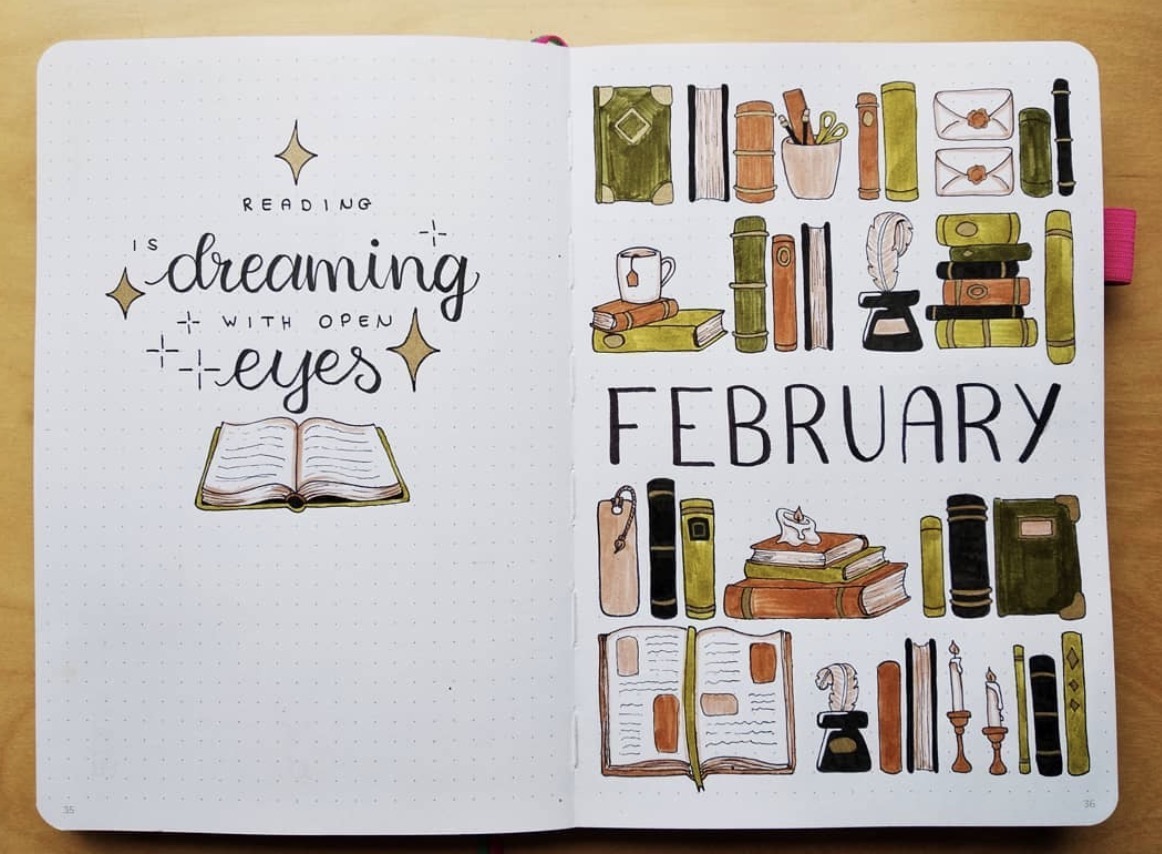 READING
IS dreaming
WITH OPEN
eyes
FEBRUARY
35
36